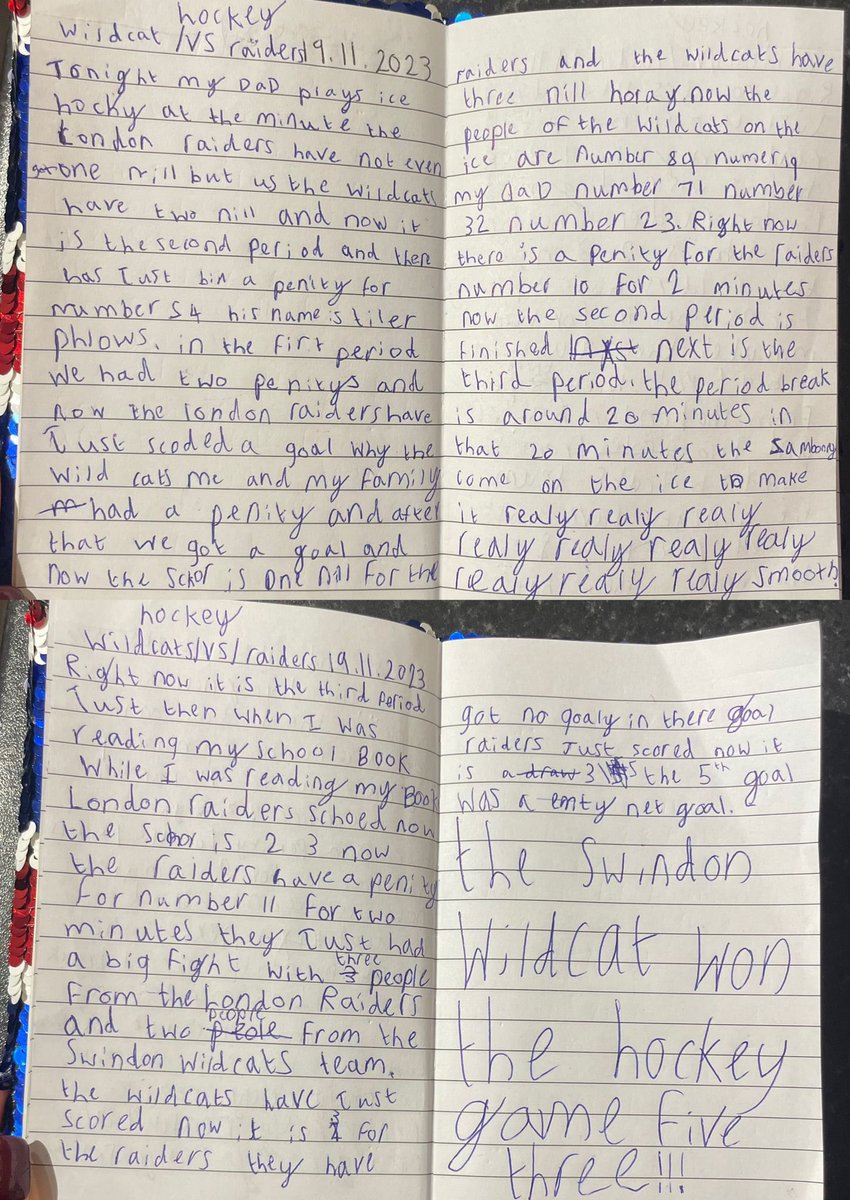 hockey
Wildcat /VS raiders 19.11.2023
Tonight my DaD plays ice
hocky at the minute the
London raiders have not even
got one nill but us the wildcats
have two nill and now it
is the second period and there
has Just bin a penity for
number 54 his name is tiler
phlows. in the first period
we had two penitys and
now the london raiders have
Just scoded a goal why the
wild cats me and my family
had a penity and after
that we got a goal and
now the schor is one nill for the
raiders and the wildcats have
three nill horay now the
people of the wildcats on the
ice are number 89 numer 19
my daD number 71 number
32 number 23. Right now
there is a penity for the raiders
number 10 for 2 minutes
now the second period is
finished next is the
third period. the period break
is around 20 minutes in
that 20 minutes the Sambony
come on the ice to make
it realy realy realy
realy realy realy realy
realy realy realy smooth!
hockey
Wildcats/VS/raiders 19.11.2023
Right now it is the third period
Just then when I was
reading my school Book
while I was reading my Book
London raiders schoed now
the schor is 2 3 now
the raiders have a penity
for number 11 for two
minutes they Just had
a big fight with three people
from the London Raiders
and two people from the
Swindon Wildcats team.
the wildcats have Just
scored now it is for
the raiders they have
got no goaly in there goal
raiders Just scored now it
is a draw 3 5 the 5th goal
was a emty net goal.
the Swindon
Wildcat won
the hockey
game five
three!!!